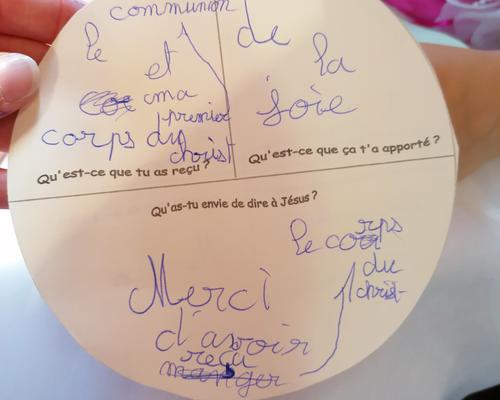 communion
le
et
ma
premier
corps du
christ
Qu'est-ce que tu as reçu ?
de
la
joie
Qu'est-ce que ça t'a apporté ?
Qu'as-tu envie de dire à Jésus ?
Merci
d'avoir
reçu
manger
le corps
du
christ